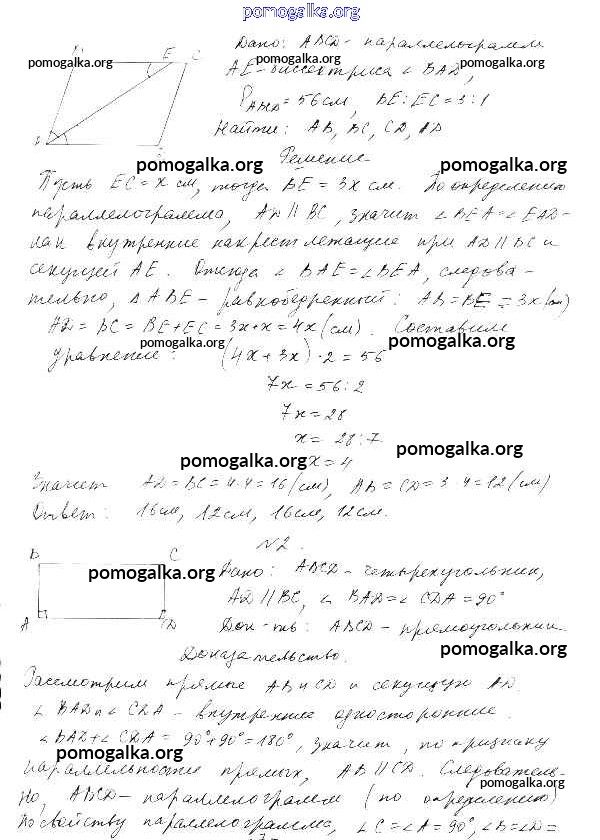 pomogalka.org
B E C Дано: ABCD – параллелограмм
pomogalka.org pomogalka.org pomogalka.org
AE – биссектриса ∠ BAD,
P ABCD = 56 см, BE : EC = 3 : 1
Найти: AB, BC, CD, AD
pomogalka.org pomogalka.org
Решение
Пусть EC = x см, тогда BE = 3x см. По определению
параллелограмма, AD || BC, значит ∠BEA = ∠EAD –
как внутренние накрест лежащие при AD || BC и
секущей AE. Отсюда ∠ BAE = ∠BEA, следова-
тельно, △ ABE – равнобедренный: AB = BE = 3x (см)
AD = BC = BE + EC = 3x + x = 4x (см). Составим
pomogalka.org pomogalka.org
уравнение: (4x + 3x) · 2 = 56
7x = 56 : 2
7x = 28
x = 28 : 7
pomogalka.org
pomogalka.org x = 4
Значит AD = BC = 4 · 4 = 16 (см), AB = CD = 3 · 4 = 12 (см)
Ответ: 16 см, 12 см, 16 см, 12 см.
N 2.
B C
pomogalka.org Дано: ABCD – четырехугольник,
pomogalka.org
AD || BC, ∠ BAD = ∠ CDA = 90°
A D Док-ть: ABCD – прямоугольник.
pomogalka.org
Доказательство.
Рассмотрим прямые AB и CD и секущую AD.
∠ BAD и ∠ CDA – внутренние односторонние.
∠ BAD + ∠ CDA = 90° + 90° = 180°, значит, по признаку
pomogalka.org
параллельности прямых, AB || CD. Следователь-
pomogalka.org
но, ABCD – параллелограмм (по определению)
По свойству параллелограмма, ∠ C = ∠ A = 90°, ∠ B = ∠ D =